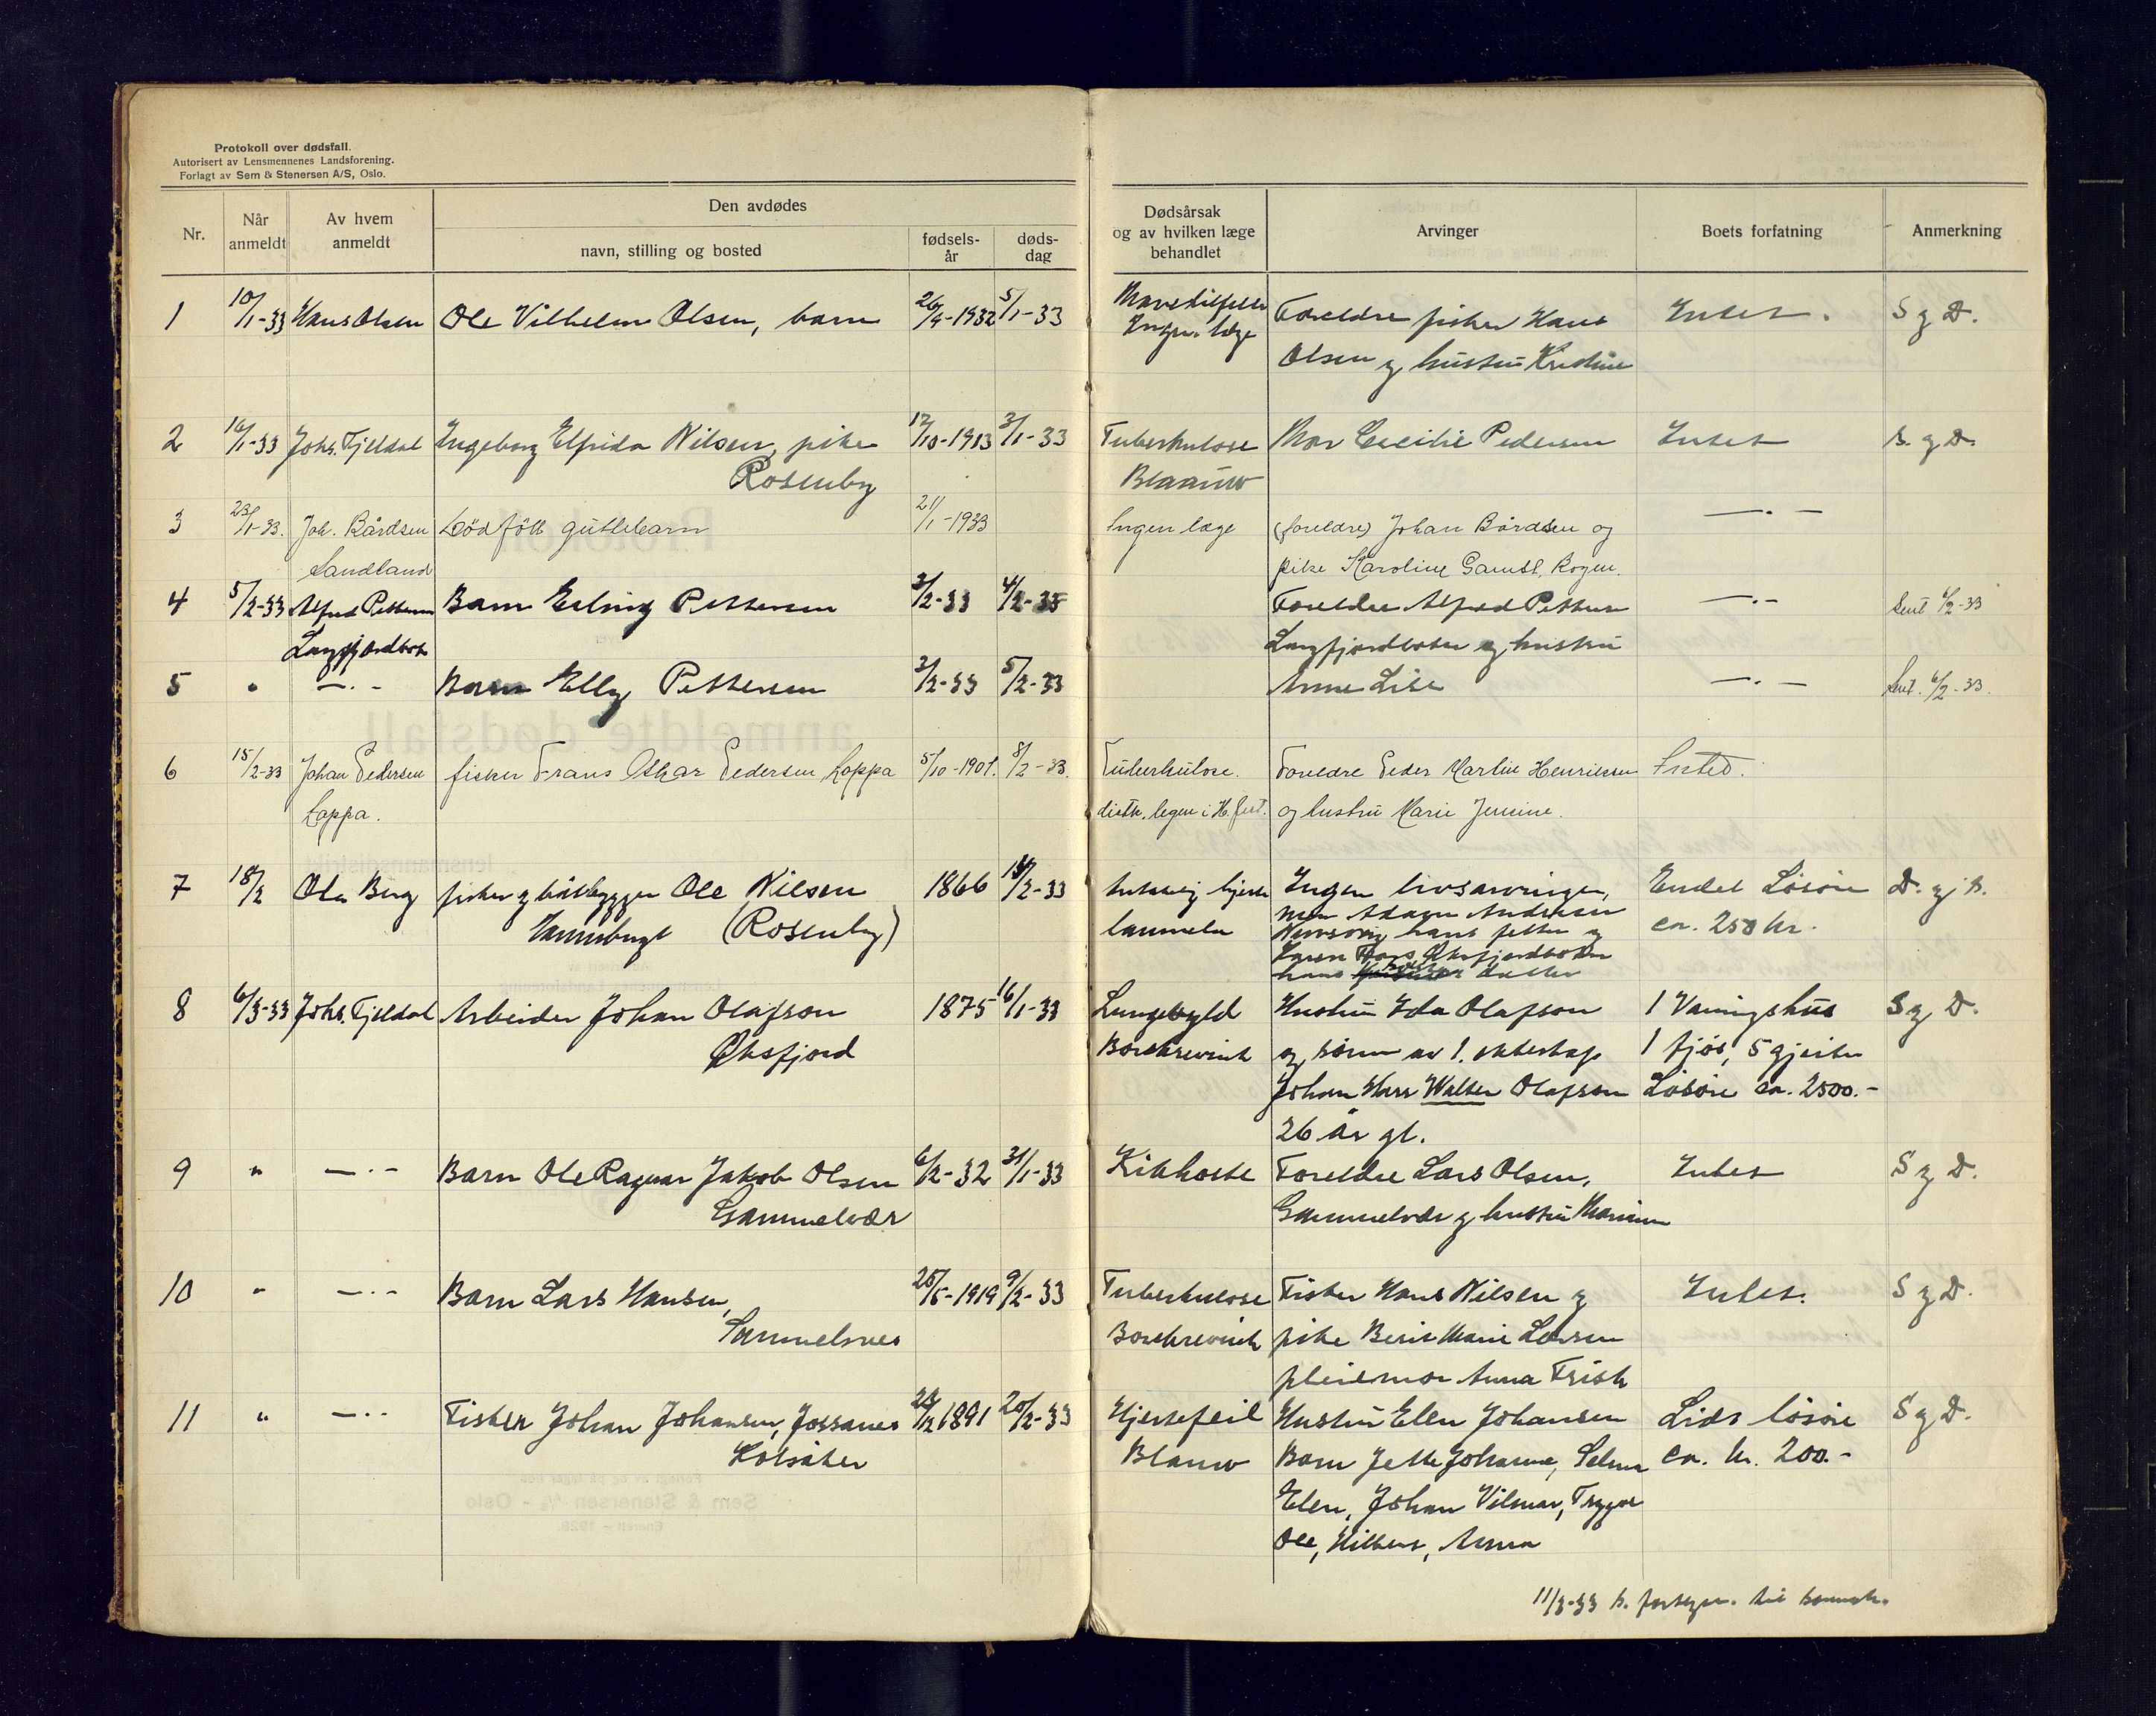 Protokoll over dødsfall.
Autorisert av Lensmennenes Landsforening.
Forlagt av Sem & Stenersen A/S, Oslo.
Nr. Når anmeldt Av hvem anmeldt Den avdødes
navn, stilling og bosted fødsels-år døds-dag
Dødsårsak og av hvilken læge behandlet Arvinger Boets forfatning Anmerkning
1 10/1-33 Hans Olsen Ole Vilhelm Olsen, barn 26/4-1932 5/1-33 Mavetilfelle Foreldre fisker Hans Intet. S og D.
Ingen læge Olsen og hustru Kristine
2 16/1-33 Johs. Fjeldal Ingeborg Elfrida Nilsen, pike 17/10-1913 3/1-33 Tuberkulose Mor Cecilie Pedersen Intet S. og D.
Rosenby Blaauw
3 23/1-33. Joh. Bårdsen Dødfött guttebarn 21/1-1933 Ingen læge (foreldre) Johan Bårdsen og —.—
Sandland pike Karoline Gamst, Rogen.
4 5/2-33 Alfred Pettersen Barn Erling Pettersen 3/2-33 4/2-33 Foreldre Alfred Pettersen —.— Sent 6/2-33
Langfjordbotn Langfjordbotn og hustru
5 " —.— Barn Elly Pettersen 3/2-33 5/2-33 Anne Lise —.— Sent. 6/2-33.
6 15/2-33 Johan Pedersen fisker Frans Oskar Pedersen Loppa 5/10-1901. 8/2-33. Tuberkulose. Foreldre Peder Martin Henriksen Intet.
Loppa. distr. legen i H.fest. og hustru Marie Jensine.
7 18/2 Ola Berg fisker og båtbygger Ole Nilsen 1866 /2-33 hjerte Ingen livsarvinger, Endel Løsøre D. og S.
(Rosenby) lammelse men Adagn Andersen ca. 250 kr.
hans fetter og
Øksfjordbotn
hans datter
8 6/3-33 Johs. Fjeldal Arbeider Johan Olafson 1875 16/1-33 Lungebyld Hustru Ida Olafson 1 Vaningshus S og D.
Øksfjord Borchrevink og sønn av 1. ekteskap 1 fjøs, 5 gjeiter
Johan Hans Walter Olafson Løsøre ca. 2500.-
26 år gl.
9 " —.— Barn Ole Ragnar Jakob Olsen 6/2-32 31/1-33 Kikhoste Foreldre Lars Olsen, Intet S og D.
Gammelvær Gammelvær og hustru Marianne
10 " —.— Barn Lars Hansen, 25/5-1919 9/2-33 Tuberkulose Fisker Hans Nilsen og Intet. S og D.
Borchrevink pike Berit Marie Larsen
pleiemor Anna Frisk
11 " —.— Fisker Johan Johansen, Jossanes /12 1891 20/2-33 Hjertefeil Hustru Elen Johansen Lidt løsøre S og D.
Kolsåker Blauw Barn Jette Johanne, Selma ca. kr. 200.-
Elen, Johan Vilmar, Trygve
Ole, Hilbert, Anna
11/3-33 S. til